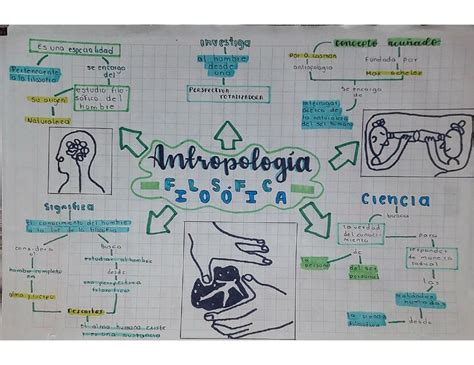 Es una especialidad
Perteneciente
a la filosofía
se encarga
del
su origen
Naturaleza
estudio filo
sófico del
hombre
investiga
al hombre
desde
una
PERSPECTIVA
TOTALIZADORA
concepto acuñado
Por O. casman
antropologia
fundada por
Max scheler
se encarga
de
interrogar
acerca de
la naturaleza
del ser humano
Antropología
FILOSOFICA
significa
El conocimiento del hombre
a la luz de la filosofía
considera
al
hombre completo
alma y cuerpo
busca
estudiar al hombre
desde
una perspectiva
Descartes
El alma humana existe
y es una sustancia
Ciencia
busca
la verdad
del conoci
miento
para
responder
de manera
la
personal
de
del ser
personal
las
desde